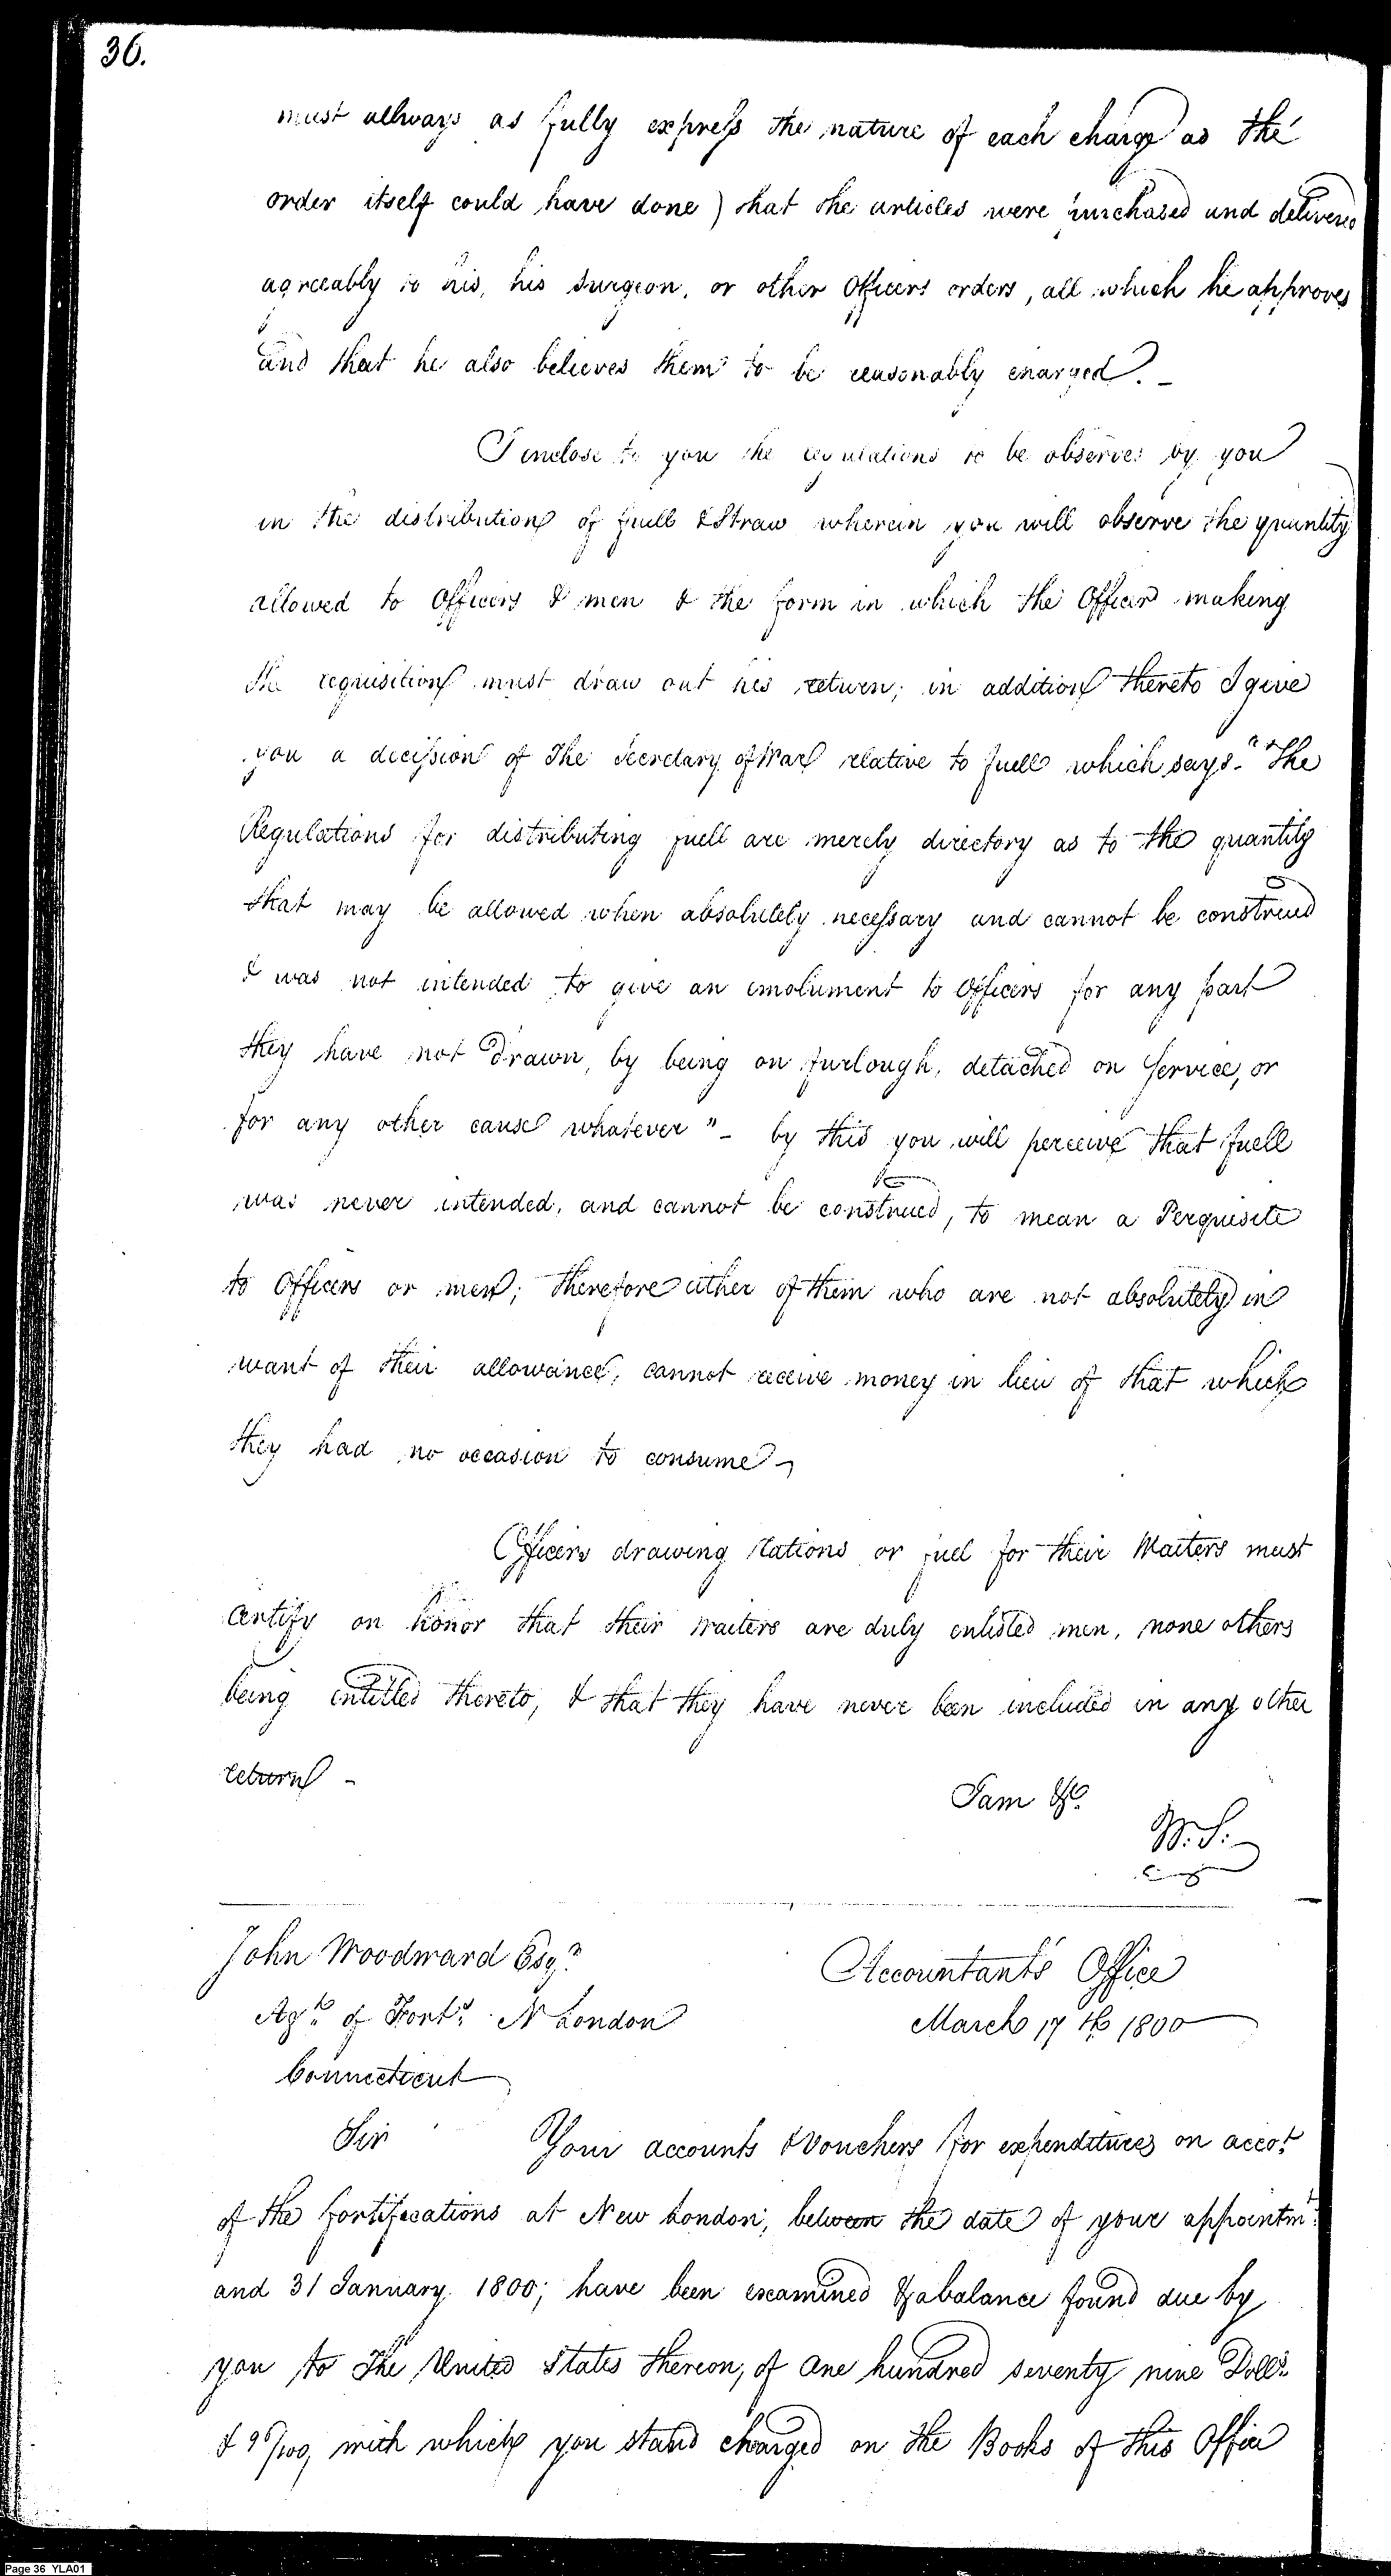 36.
must allways as fully express the nature of each charge as the
order itself could have done) that the articles were purchased and delivered
agreeably to his, his surgeon, or other Officers orders, all which he approves
and that he also believes them to be reasonably charged. -
I inclose to you the regulations to be observed by you
in the distribution of fuell & Straw wherein you will observe the quantity
allowed to Officers & men & the form in which the Officer making
the requisition must draw out his return; in addition thereto I give
you a decission of The Secretary of War relative to fuell which says - "The
Regulations for distributing fuell are merely directory as to the quantity
that may be allowed when absolutely necessary and cannot be construed
& was not intended to give an emolument to Officers for any part
they have not drawn, by being on furlough, detached on Service, or
for any other cause whatever" - by this you will perceive that fuell
was never intended, and cannot be construed, to mean a Perquisite
to Officers or men; therefore either of them who are not absolutely in
want of their allowance, cannot receive money in lieu of that which
they had no occasion to consume -
Officers drawing rations or fuel for their Waiters must
certify on honor that their waiters are duly enlisted men, none others
being entitled thereto, & that they have never been included in any other
return -
I am &c.
W. S.
John Woodward Esqr.
Agt. of Fort. N London
Connecticut
Accountant's Office
March 17th 1800
Sir Your accounts & Vouchers for expenditures on accot.
of the fortifications at New London, between the date of your appointmt.
and 31 January 1800; have been examined & a balance found due by
you to The United States thereon, of One hundred seventy nine Dolls.
& 96/100, with which you stand charged on the Books of this Office
Page 36 YLA01